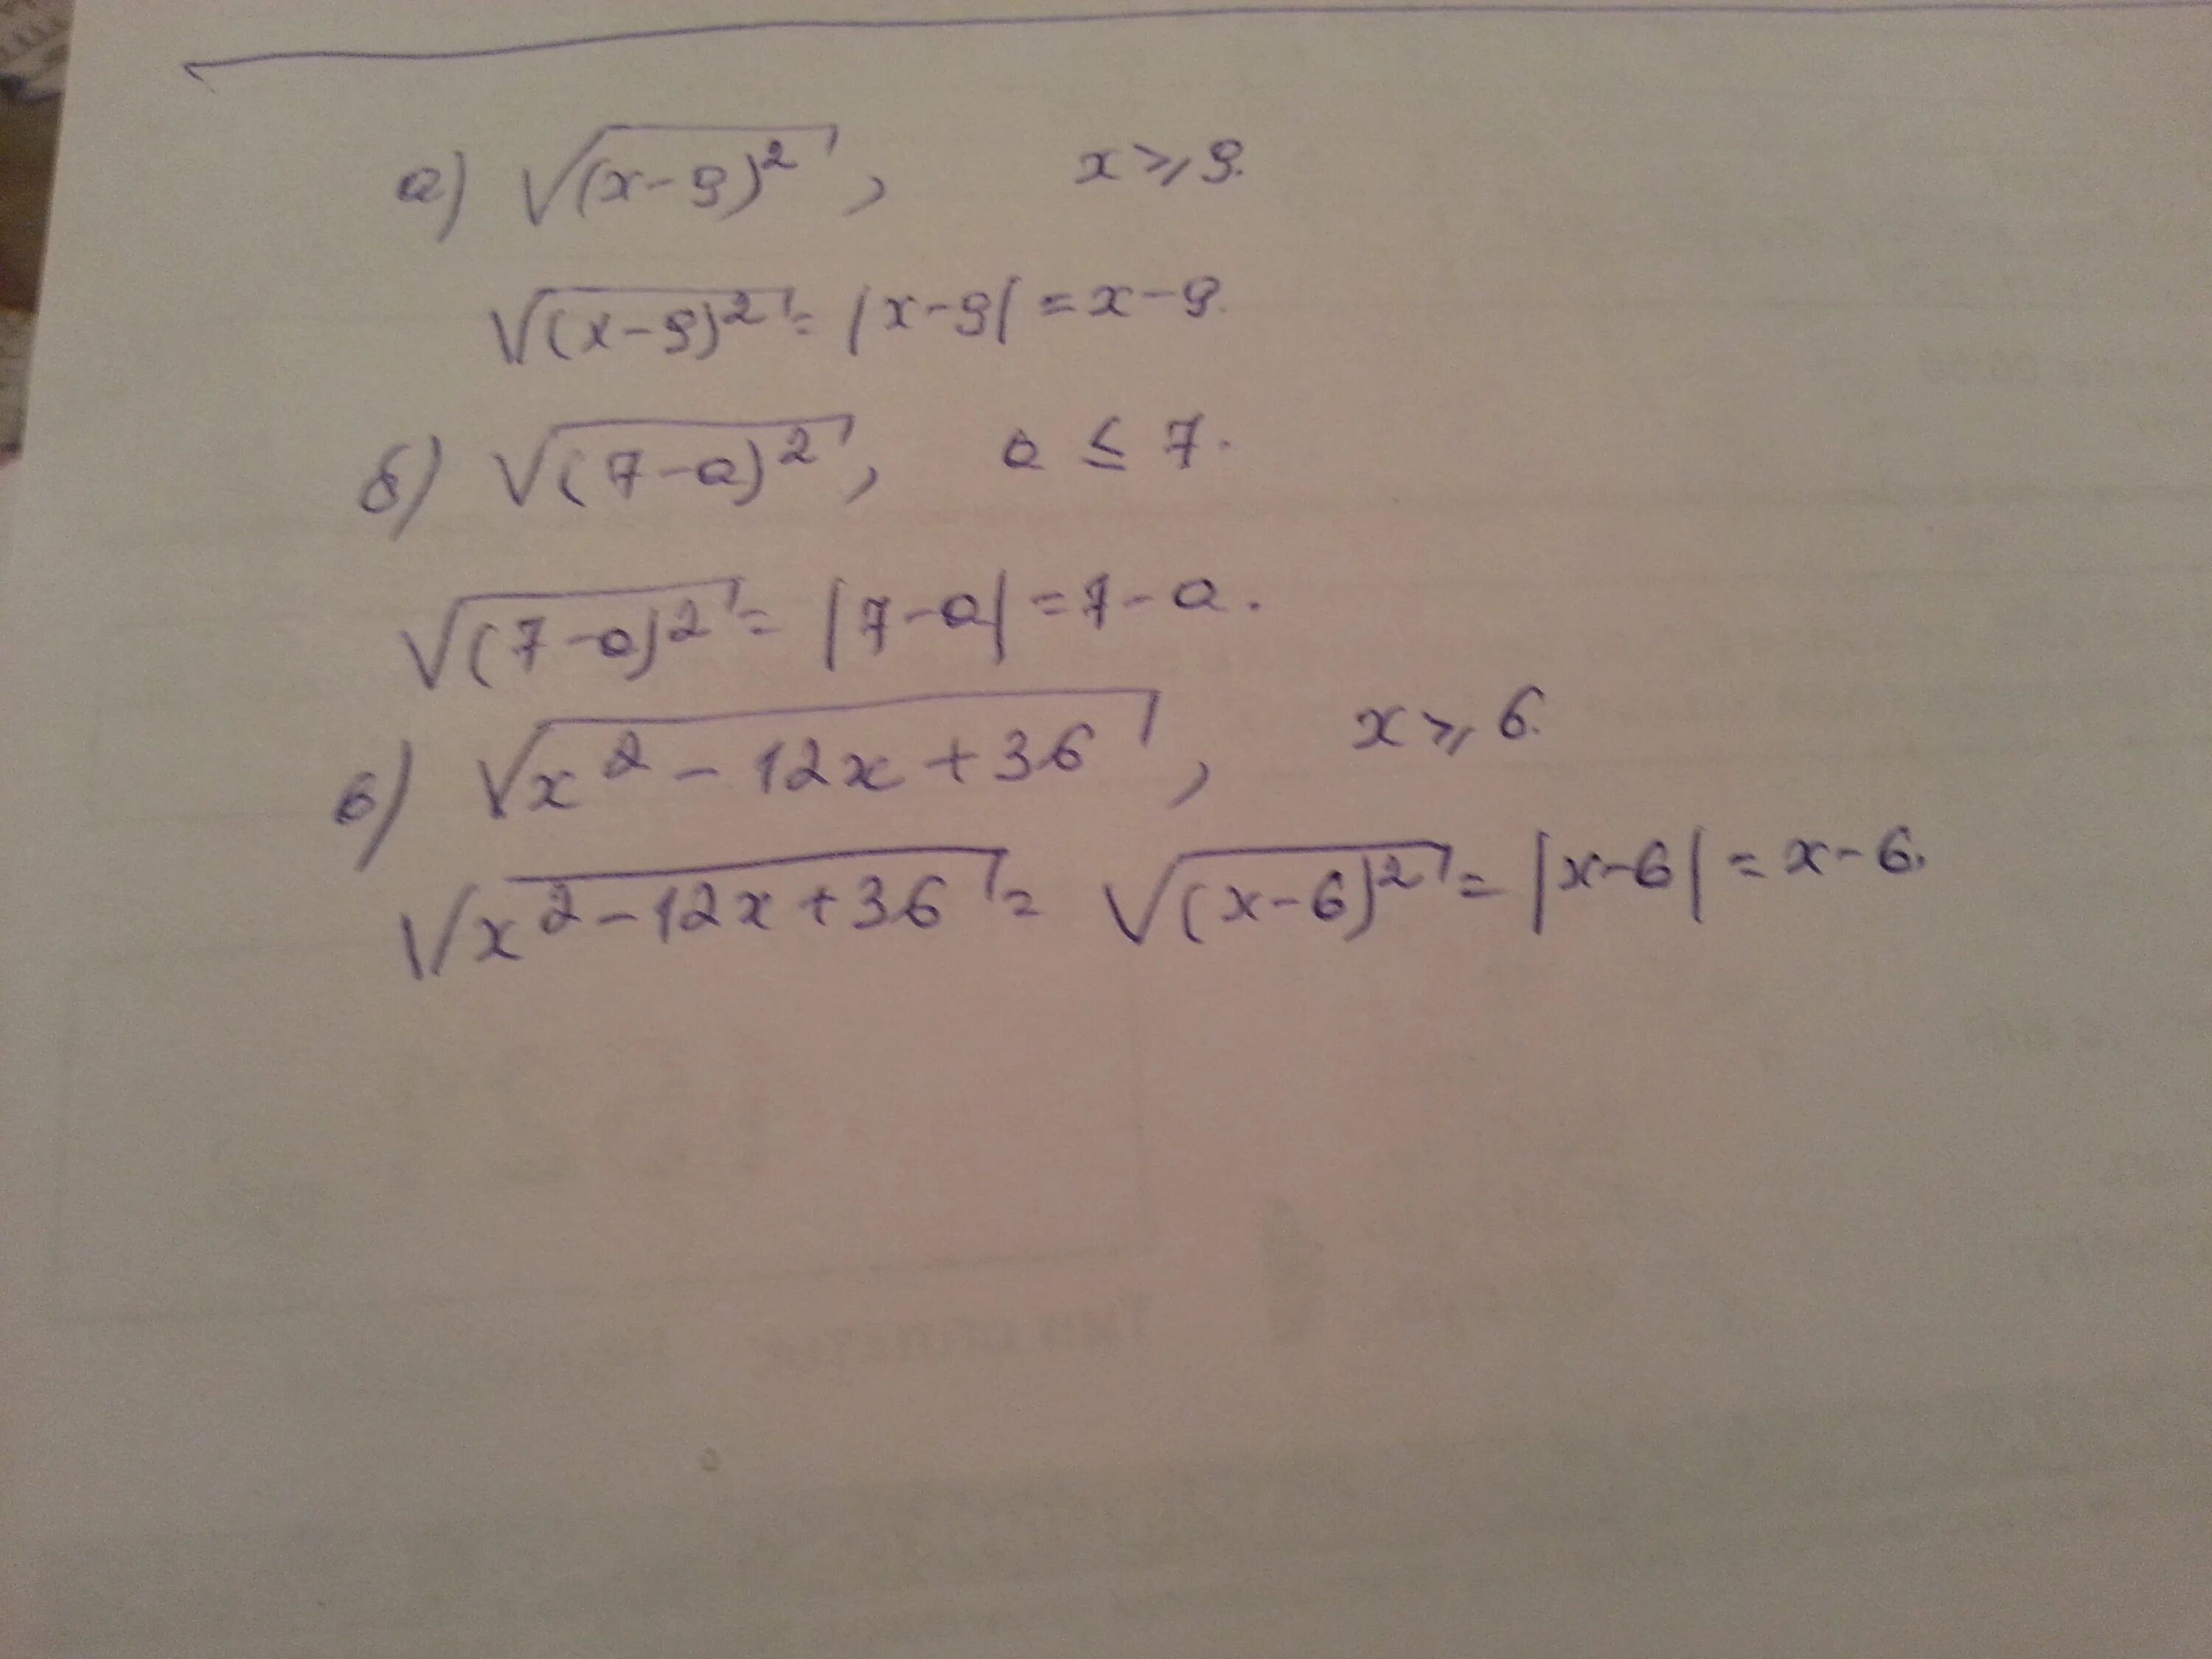 а) √(x-9)², x ⩾ 9.
√(x-9)² = |x-9| = x-9.
б) √(7-a)², a ≤ 7.
√(7-a)² = |7-a| = 7-a.
в) √x²-12x+36, x ⩾ 6.
√x²-12x+36 = √(x-6)² = |x-6| = x-6.